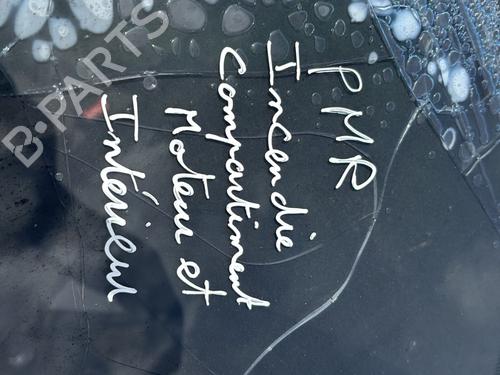 PMR
Incendie
Compartiment
Moteur et
Intérieur
B-PARTS